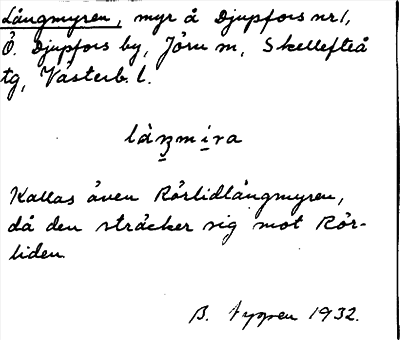 Långmyren, myr å Djupfors nr 1,
Ö. Djupfors by, Jörn m, Skellefteå
tg, Västerb. l.
làŋmira
Kallas även Rörlidlångmyren,
då den sträcker sig mot Rör-
liden.
B. 1932.